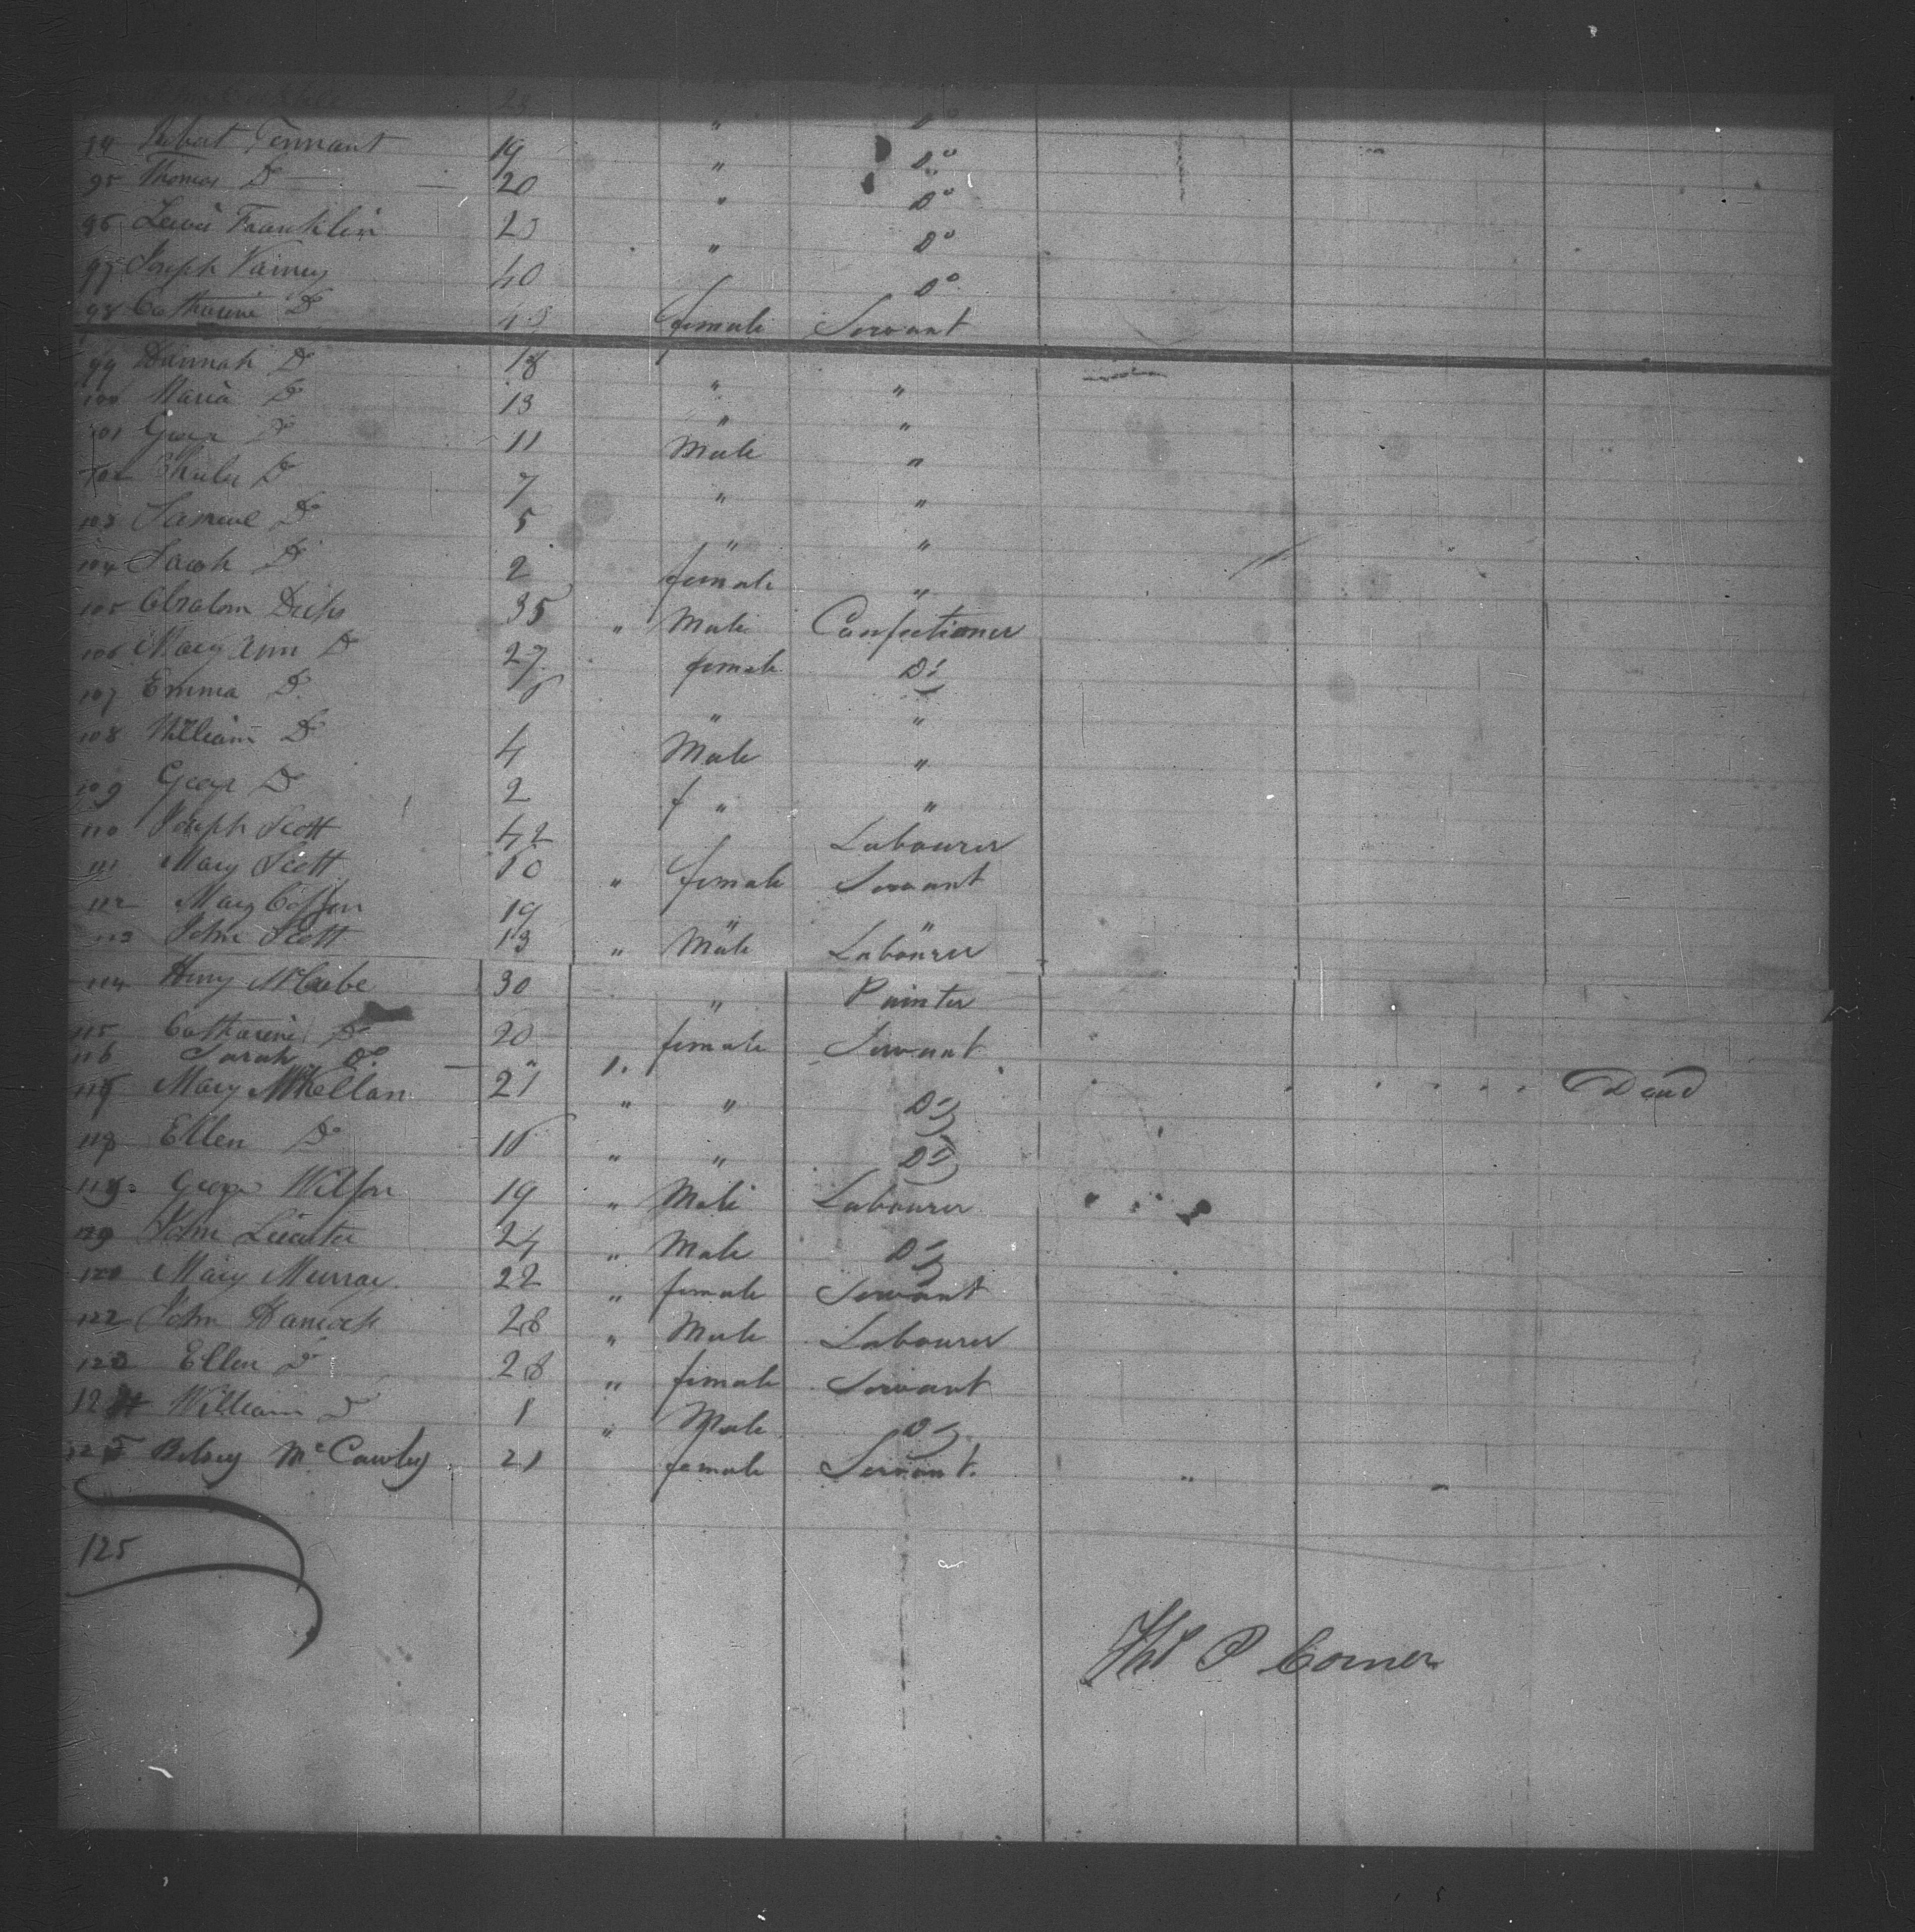 23 " Do
94 Robert Tennant 19 " Do
95 Thomas Do 20 " Do
96 Lewis Franklin 23 " Do
97 Joseph Vainey 40 " Do
98 Catharine Do 43 female Servant
99 Hannah Do 18 " "
100 Maria Do 13 " "
101 Geoge Do 11 Male "
102 Charles Do 7 " "
103 Samuel Do 5 " "
104 Sarah Do 2 female "
105 Abralom Dicks 35 " Male Confectioner
106 Mary Ann Do 27 female Do
107 Emma Do 6 " "
108 William Do 4 Male "
109 Geoge Do 2 f " "
110 Joseph Scott 42 Labourer
111 Mary Scott 10 " female Servant
112 Mary 19 " "
113 John Scott 13 " Male Labourer
114 Henry McCabe 30 " Painter
115 Catharine Do 20 female Servant
116 Sarah Do " 1.
117 Mary McKellan 21 " " Do Dead
118 Ellen Do 16 " " Do
119 Geoge Wilson 19 " Male Labourer
John 24 " Male Do
Mary Murray 22 " female Servant
122 John Hancock 28 " Male Labourer
123 Ellen Do 28 " female Servant
124 William Do 1 " Male Do
125 Betsey Mc Cawley 21 female Servant. "
125
Thos P Corner